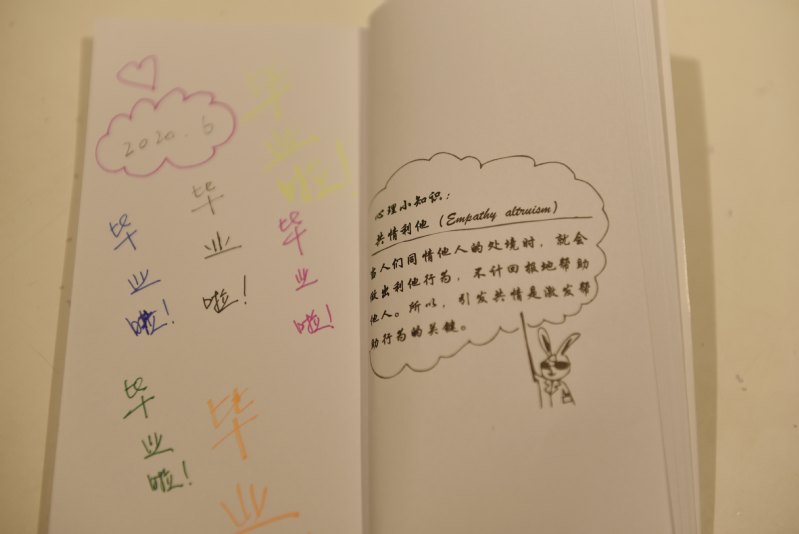 2020.6
毕业啦!
毕业啦!
毕业啦!
毕业啦!
毕业啦!
毕业
心理小知识：
共情利他（Empathy altruism）
当人们同情他人的处境时，就会
做出利他行为，不计回报地帮助
他人。所以，引发共情是激发帮
助行为的关键。